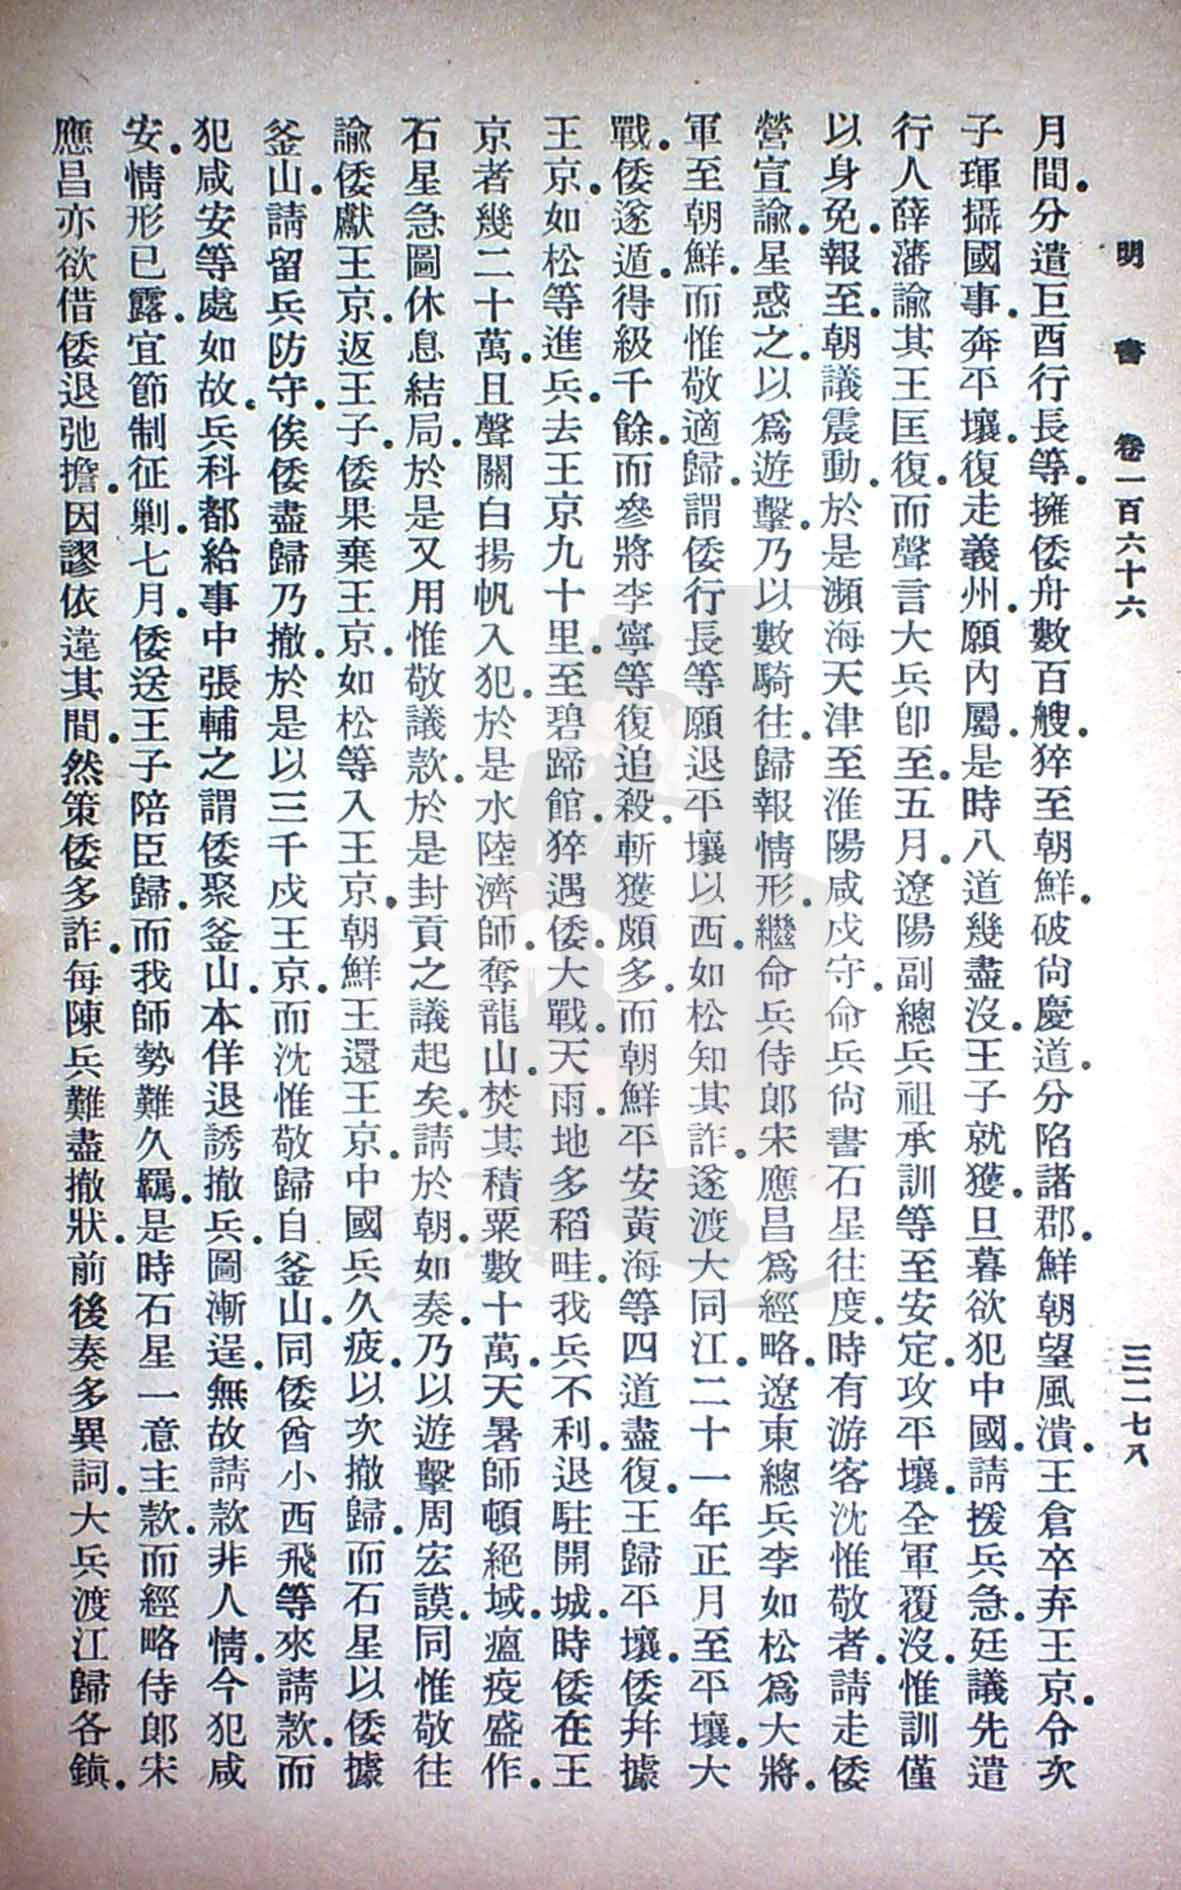 明書 卷一百六十六 三二七八
月間.分遣巨酋行長等.擁倭舟數百艘.猝至朝鮮.破尙慶道.分陷諸郡.鮮朝望風潰.王倉卒弃王京.令次
子琿攝國事.奔平壤.復走義州.願內屬.是時八道幾盡沒.王子就獲.旦暮欲犯中國.請援兵急.廷議先遣
行人薛藩諭其王匡復.而聲言大兵卽至.五月.遼陽副總兵祖承訓等至安定.攻平壤.全軍覆沒.惟訓僅
以身免.報至.朝議震動.於是瀕海天津至淮陽咸戍守.命兵尙書石星往度.時有游客沈惟敬者.請走倭
營宣諭.星惑之.以爲遊擊.乃以數騎往.歸報情形.繼命兵侍郞宋應昌爲經略.遼東總兵李如松爲大將.
軍至朝鮮.而惟敬適歸.謂倭行長等願退平壤以西.如松知其詐.遂渡大同江.二十一年正月至平壤.大
戰.倭遂遁.得級千餘.而參將李寧等復追殺.斬獲頗多.而朝鮮平安黃海等四道盡復.王歸平壤.倭幷據
王京.如松等進兵.去王京九十里.至碧蹄館.猝遇倭.大戰.天雨.地多稻畦.我兵不利.退駐開城.時倭在王
京者幾二十萬.且聲關白揚帆入犯.於是水陸濟師.奪龍山.焚其積粟數十萬.天暑師頓絕域.瘟疫盛作.
石星急圖休息結局.於是又用惟敬議款.於是封貢之議起矣.請於朝.如奏.乃以遊擊周宏謨.同惟敬往
諭倭獻王京.返王子.倭果棄王京.如松等入王京.朝鮮王還王京.中國兵久疲.以次撤歸.而石星以倭據
釜山.請留兵防守.俟倭盡歸乃撤.於是以三千戍王京.而沈惟敬歸自釜山.同倭酋小西飛等來請款.而
犯咸安等處如故.兵科都給事中張輔之謂倭聚釜山.本佯退誘撤兵.圖漸逞.無故請款非人情.今犯咸
安.情形已露.宜節制征剿.七月.倭送王子陪臣歸.而我師勢難久羈.是時石星一意主款.而經略侍郞宋
應昌亦欲借倭退弛擔.因謬依違其間.然策倭多詐.每陳兵難盡撤狀.前後奏多異詞.大兵渡江歸各鎭.